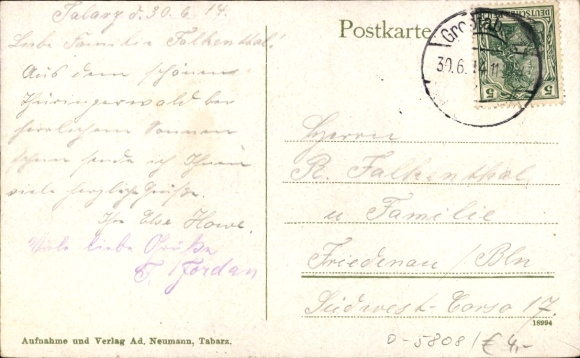 Tabarz d. 30.6.14.
Liebe Familie Falkenthal!
Aus dem schönen
Thüringerwald bei
herrlichem Sonnen
schein sende ich Ihnen
viele herzliche Grüße.
Ihre Else Howe.
Viele liebe Grüße
E. Jordan
Aufnahme und Verlag Ad. Neumann, Tabarz.
Postkarte
30.6.14 11
DEUTSCHES REICH
5 5
Herrn
R. Falkenthal
u Familie
Friedenau / Bln
Südwest-Corso 17.
18994
D-5808 / € 4,-